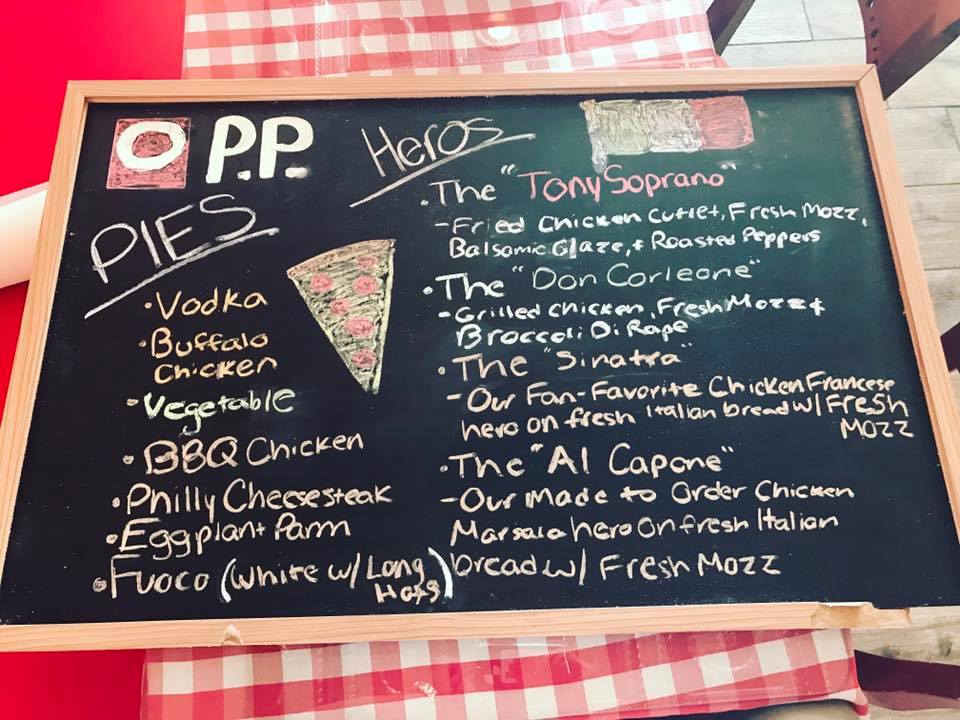 O P.P.
PIES
• Vodka
• Buffalo
Chicken
• Vegetable
• BBQ Chicken
• Philly Cheesesteak
• Eggplant Parm
• Fuoco (White w/ Long
Hots)
Heros
• The "Tony Soprano"
- Fried Chicken Cutlet, Fresh Mozz,
Balsamic Glaze, + Roasted Peppers
• The "Don Corleone"
- Grilled Chicken, Fresh Mozz +
Broccoli Di Rape
• The "Sinatra"
- Our Fan-Favorite Chicken Francese
hero on fresh Italian bread w/ Fresh
Mozz
• The "Al Capone"
- Our Made to Order Chicken
Marsala hero on fresh Italian
bread w/ Fresh Mozz